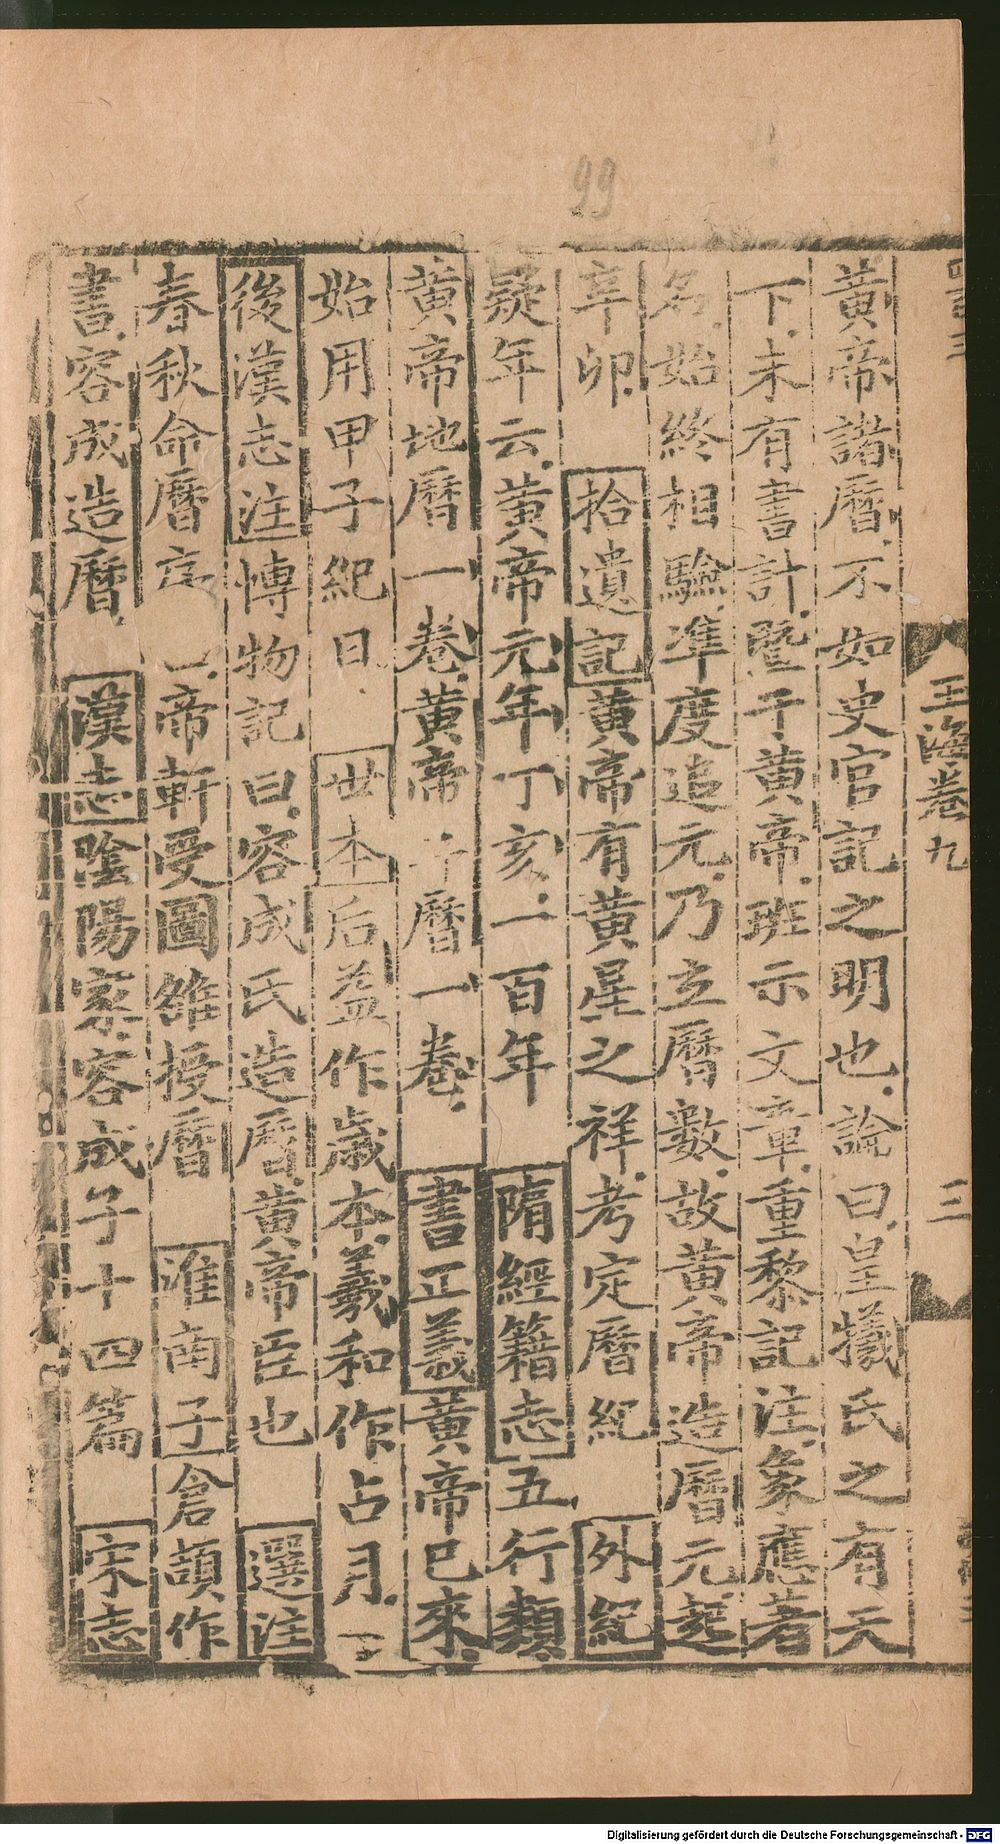 玉海卷九
三
黃帝諸曆不如史官記之明也論曰皇犧氏之有天
下未有書計曁于黃帝班示文章重黎記注象應著
名始終相驗準度追元乃立曆數故黃帝造曆元起
辛卯 拾遺記黃帝有黃星之祥考定曆紀 外紀
疑年云黃帝元年丁亥一百年 隋經籍志五行類
黃帝地曆一卷黃帝 曆一卷 書正義黃帝已來
始用甲子紀日 世本后益作歲本羲和作占月
後漢志注博物記曰容成氏造曆黃帝臣也 選注
春秋命曆 帝軒受圖雒授曆 淮南子倉頡作
書容成造曆 漢志陰陽家容成子十四篇 宋志
99
Digitalisierung gefördert durch die Deutsche Forschungsgemeinschaft - DFG